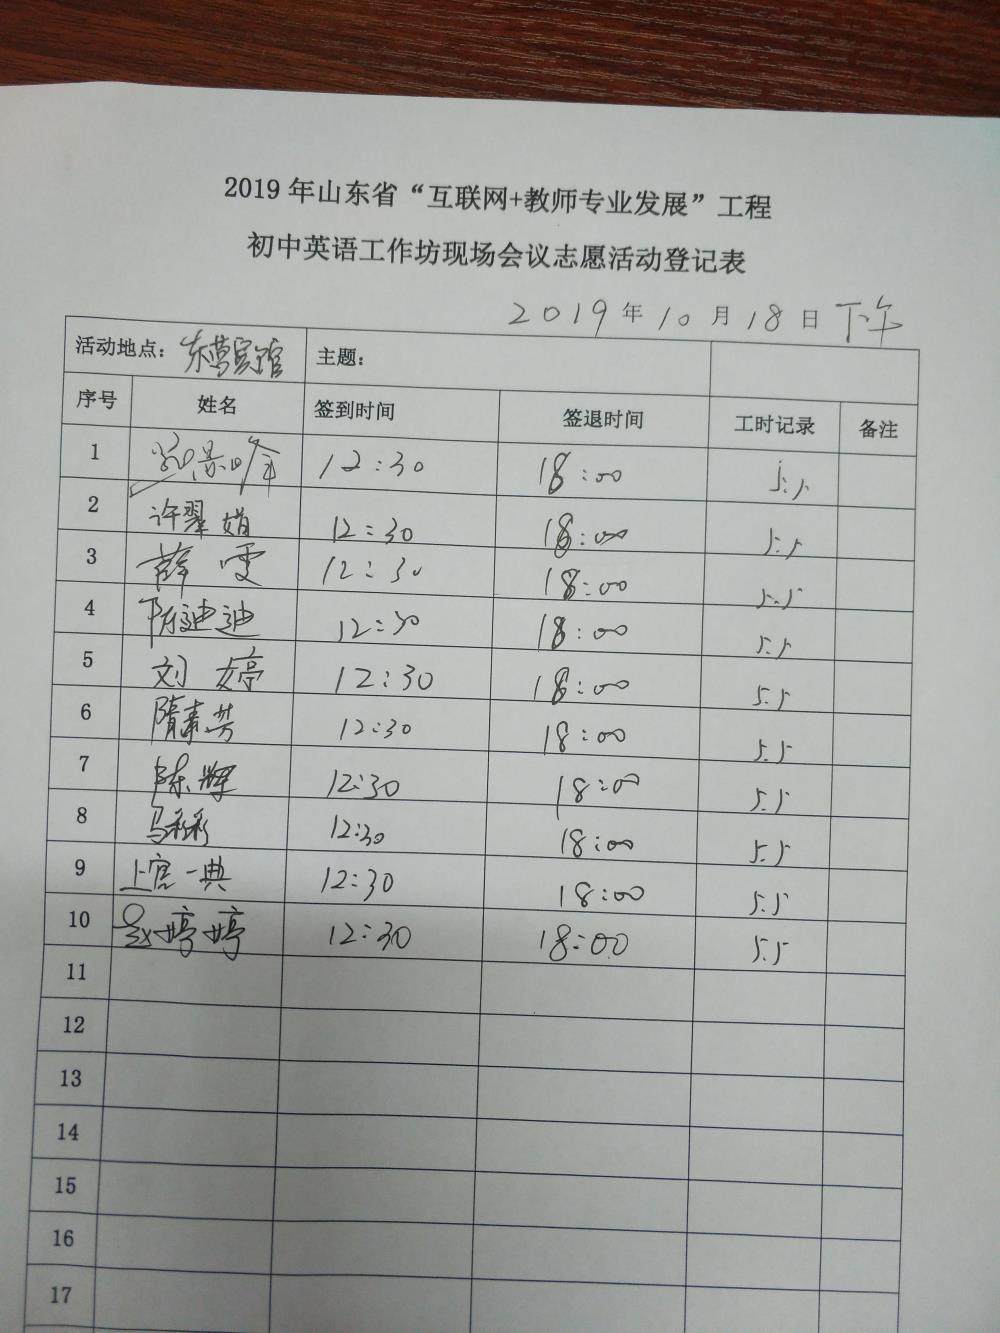 2019年山东省“互联网+教师专业发展”工程
初中英语工作坊现场会议志愿活动登记表
2019年10月18日 下午
活动地点：东营宾馆 主题：
序号 姓名 签到时间 签退时间 工时记录 备注
1 12:30 18:00 5.5
2 许翠娟 12:30 18:00 5.5
3 薛雯 12:30 18:00 5.5
4 陈迪迪 12:30 18:00 5.5
5 刘婷 12:30 18:00 5.5
6 隋青芳 12:30 18:00 5.5
7 陈辉 12:30 18:00 5.5
8 马彩彩 12:30 18:00 5.5
9 上官一典 12:30 18:00 5.5
10 赵婷婷 12:30 18:00 5.5
11
12
13
14
15
16
17